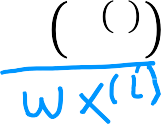 ( ( ) )
w x^(i)